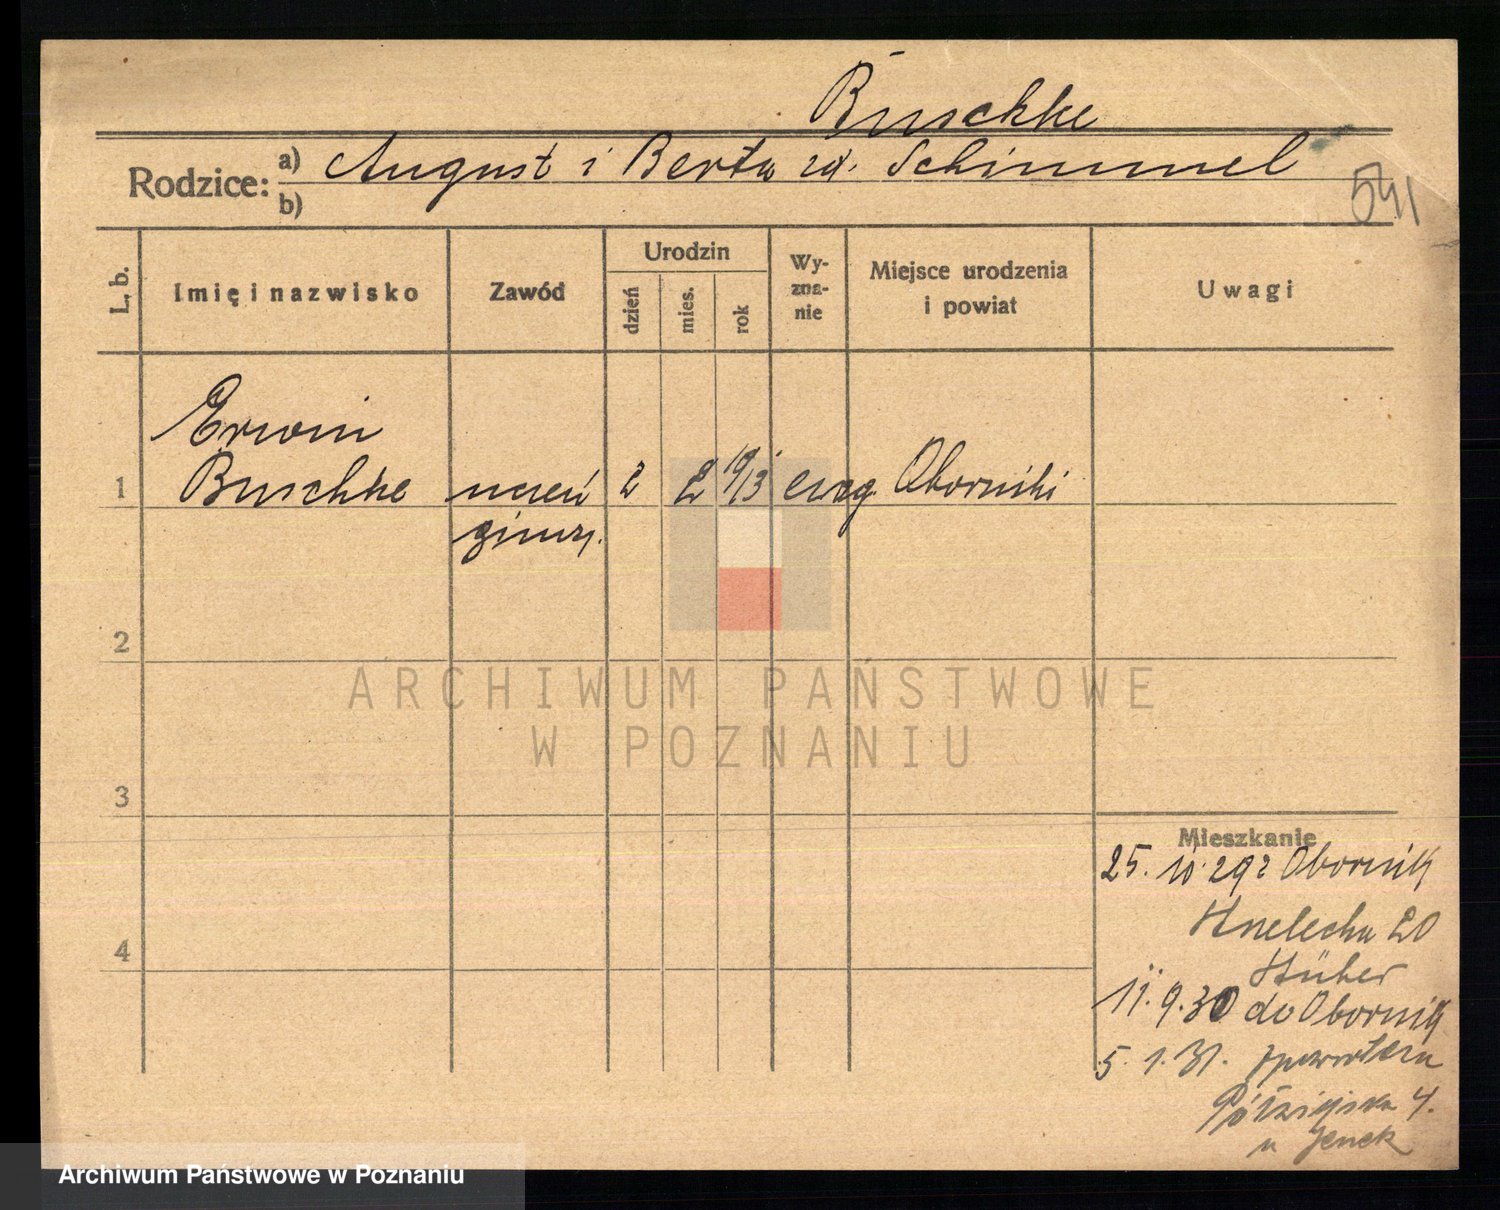 Buschke
Rodzice: a) August i Berta zd. Schimmel
b)
541
L. b.
Imię i nazwisko
Zawód
Urodzin
dzień
mies.
rok
Wy-
zna-
nie
Miejsce urodzenia
i powiat
Uwagi
Erwin
1 Buschke uczeń 2 2 1913 ewag. Oborniki
gimn.
2
ARCHIWUM PAŃSTWOWE
W POZNANIU
3
Mieszkanie
25. 10. 29 z Obornik
20
4
Hüber
11. 9. 30 do Obornik
5. 1. 31. zpowrotem
4.
u Jenek
Archiwum Państwowe w Poznaniu